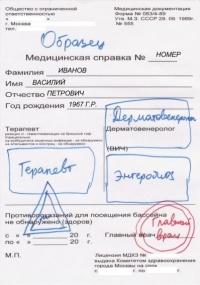 Общество с ограниченной
ответственностью
« »
г. Москвы
тел.
Медицинская документация
Форма № 083/4-89
Утв. М.З. СССР 29 09 1989г.
№ 555
Образец
Медицинская справка № НОМЕР
Фамилия ИВАНОВ
Имя ВАСИЛИЙ
Отчество ПЕТРОВИЧ
Год рождения 1967 Г.Р.
Дерматовенеролог
Терапевт
Дерматовенеролог
(ВИЧ)
Терапевт
Противопоказаний для посещения бассейна
не обнаружено (здоров)
с « » 20 г.
по « » 20 г.
Главный врач
Главный
врач
М.П.
Лицензия МДКЗ №
выдана Комитетом здравоохранения
города Москвы на срок
с г. по г.